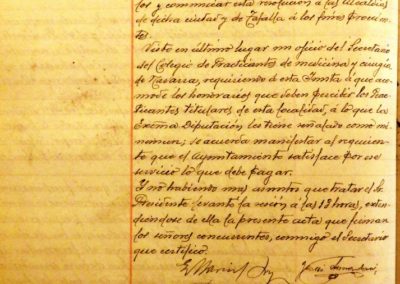 dos y comunicar esta resolución a las Alcaldías
de dicha ciudad y de Tafalla á los fines procedentes.
Visto en último lugar un oficio del Secretario
del Colegio de Practicantes de medicina y cirugía
de Navarra, requiriendo á esta Junta á que aco-
mode los honorarios que deben percibir los Prac-
ticantes titulares de esta localidad, á lo que la
Excma Diputación les tiene señalado como mí-
nimum; se acuerda manifestar al requiren-
te que el Ayuntamiento satisface por ese
servicio lo que debe pagar.
Y no habiendo mas asuntos que tratar el Sr.
Presidente levantó la sesión á las 13 horas, exten-
diéndose de ella la presente acta que firman
los señores concurrentes, conmigo el Secretario
que certifico.